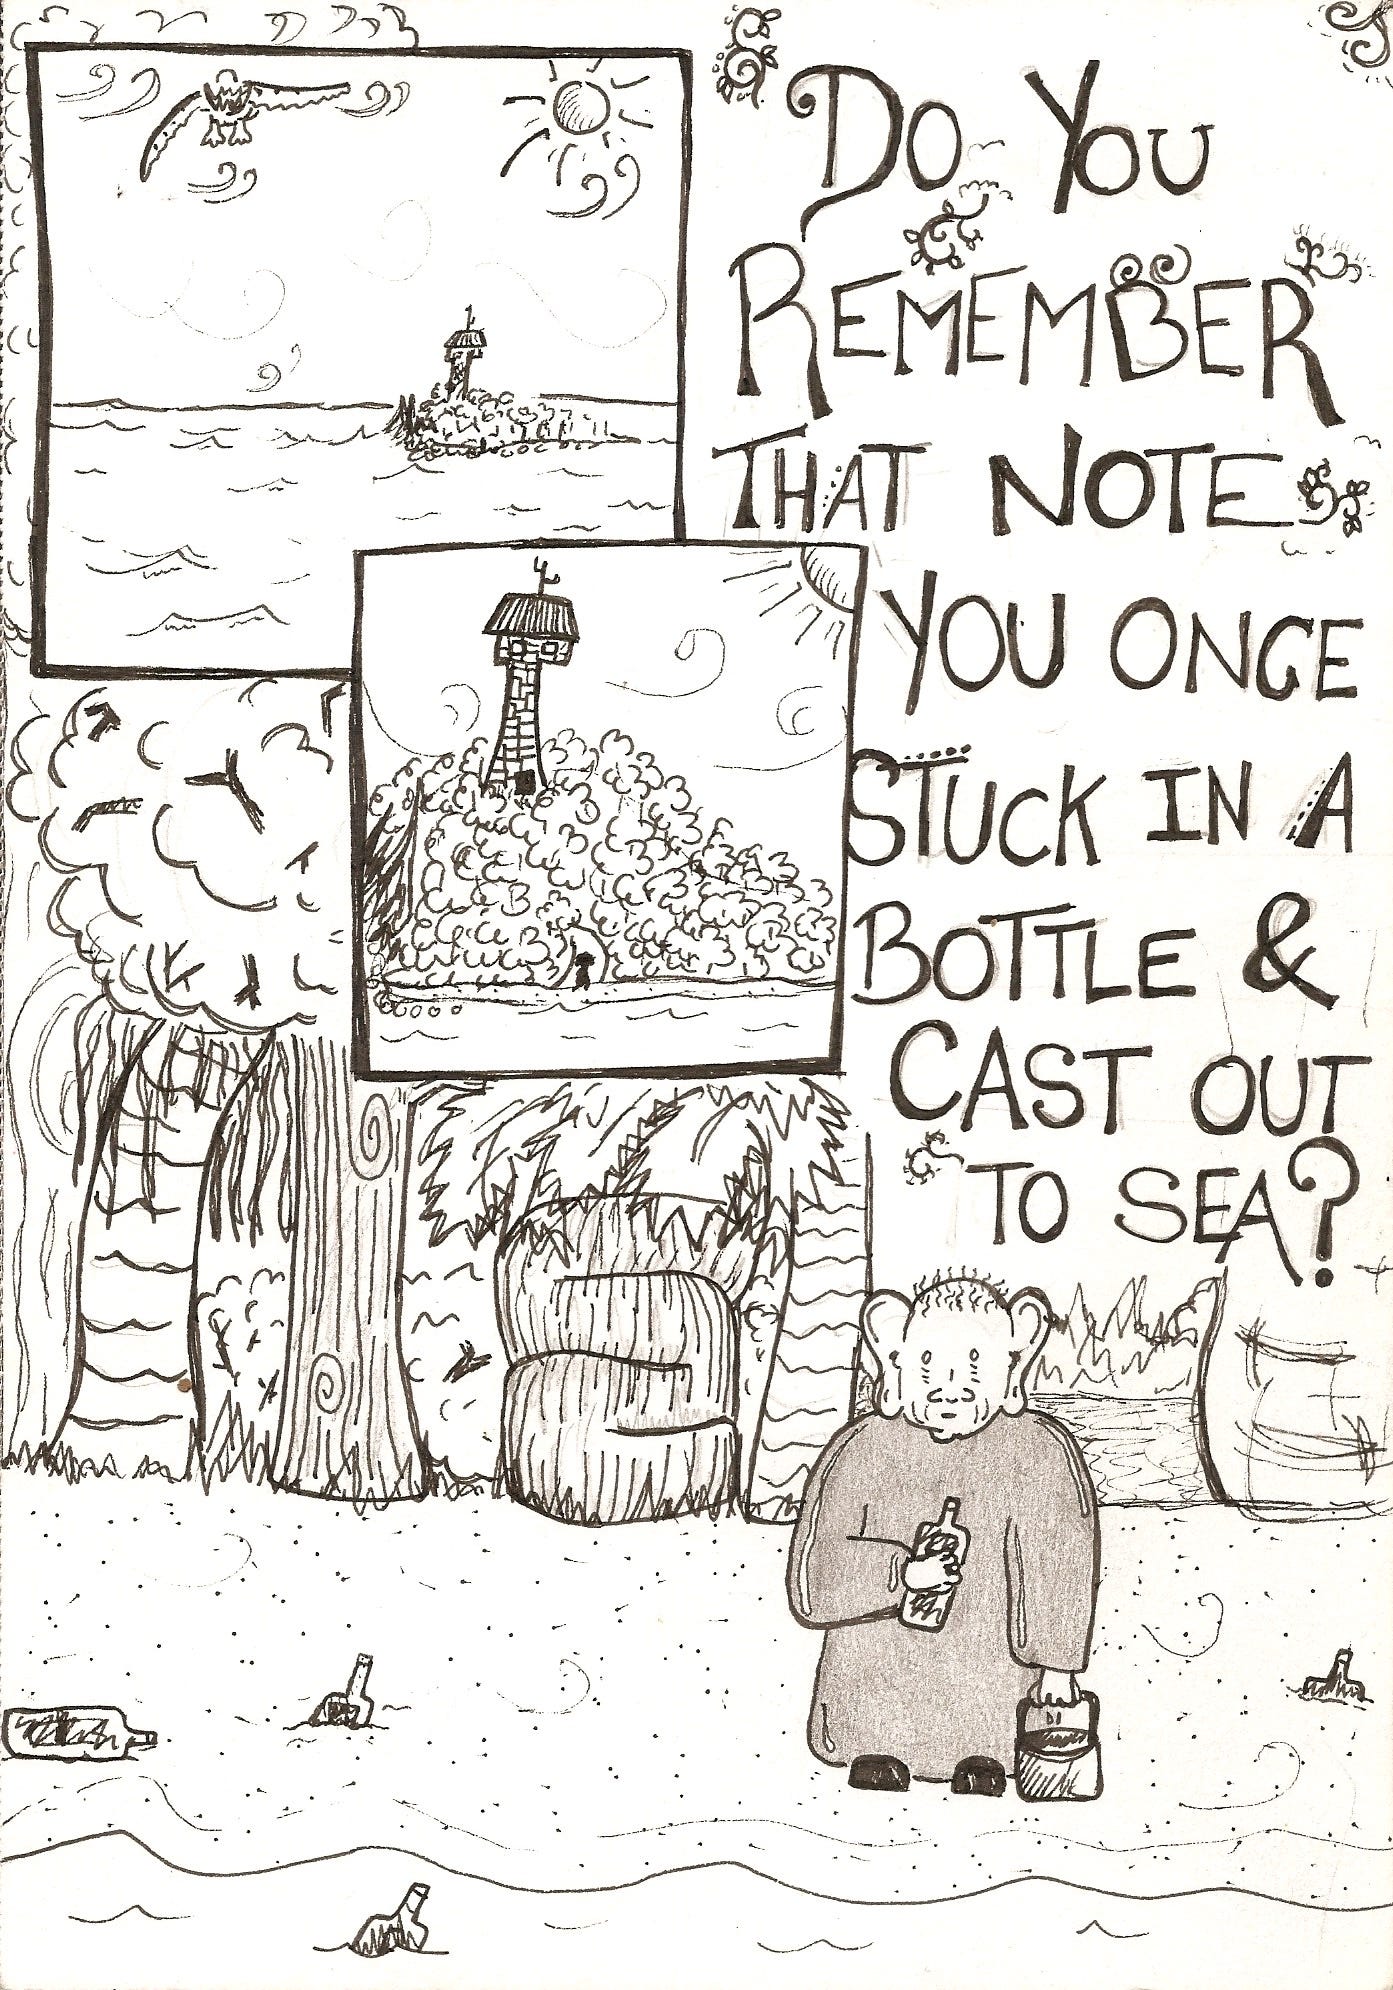 Do You
REMEMBER
THAT NOTE
YOU ONCE
STUCK IN A
BOTTLE &
CAST OUT
TO SEA?